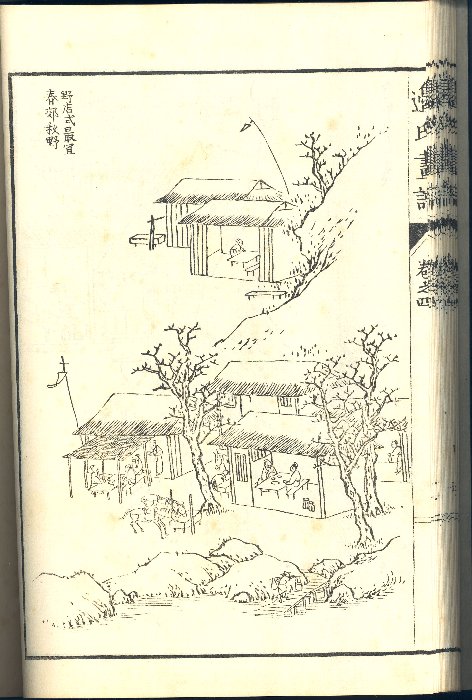 氏畫譜
卷之四
野店式最宜
春郊秋野